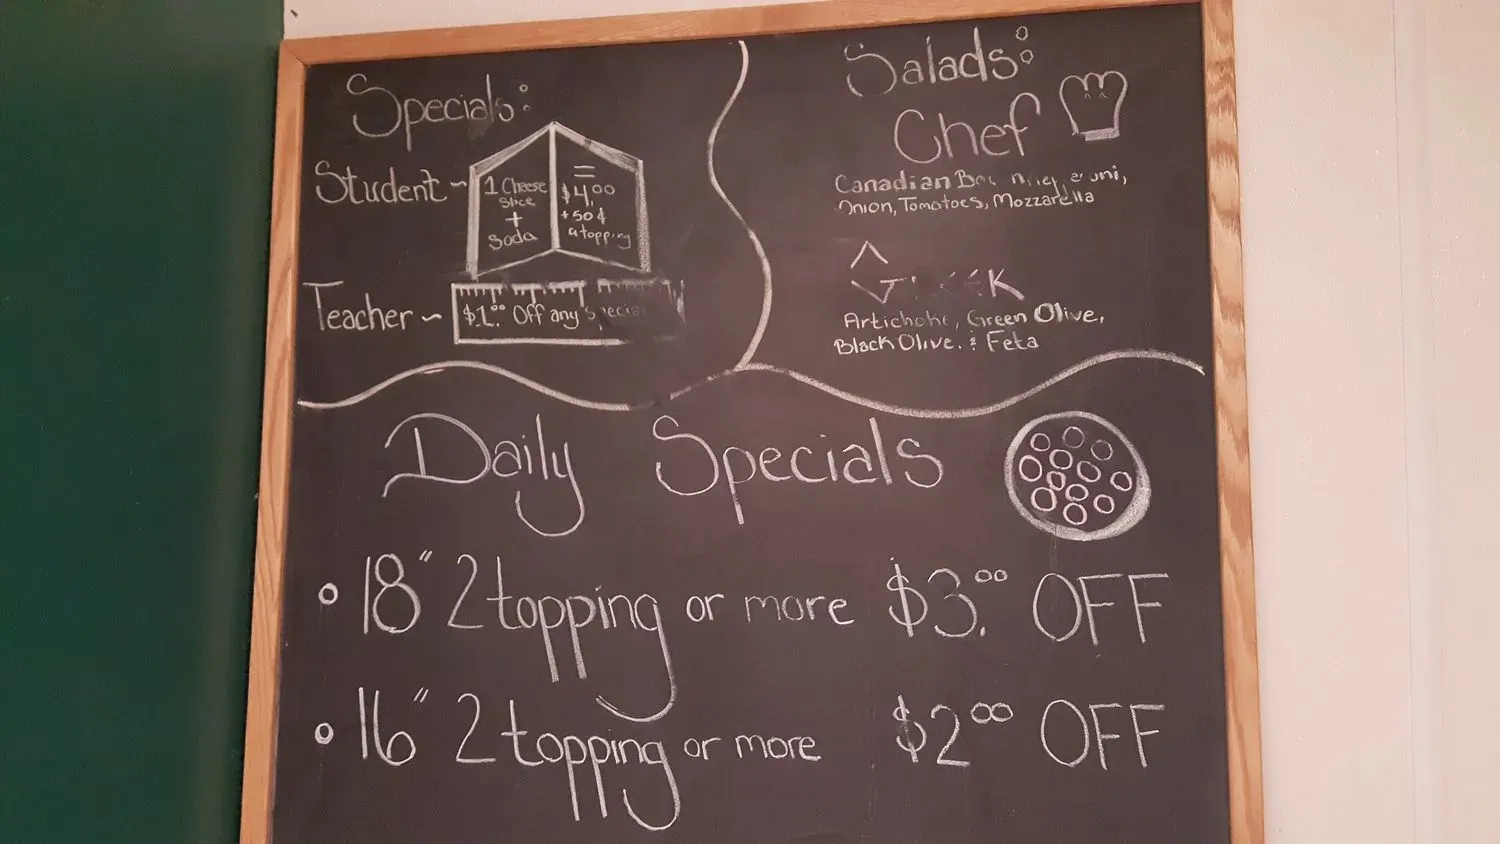 Specials:
Student ~
1 Cheese
Slice
+
Soda
=
$4.00
+50¢
a topping
Teacher ~
$1.00 Off any
Salads:
Chef
Canadian
Onion, Tomatoes, Mozzarella
Artichoke, Green Olive,
Black Olive. & Feta
Daily Specials
18" 2 topping or more $3.00 OFF
16" 2 topping or more $2.00 OFF